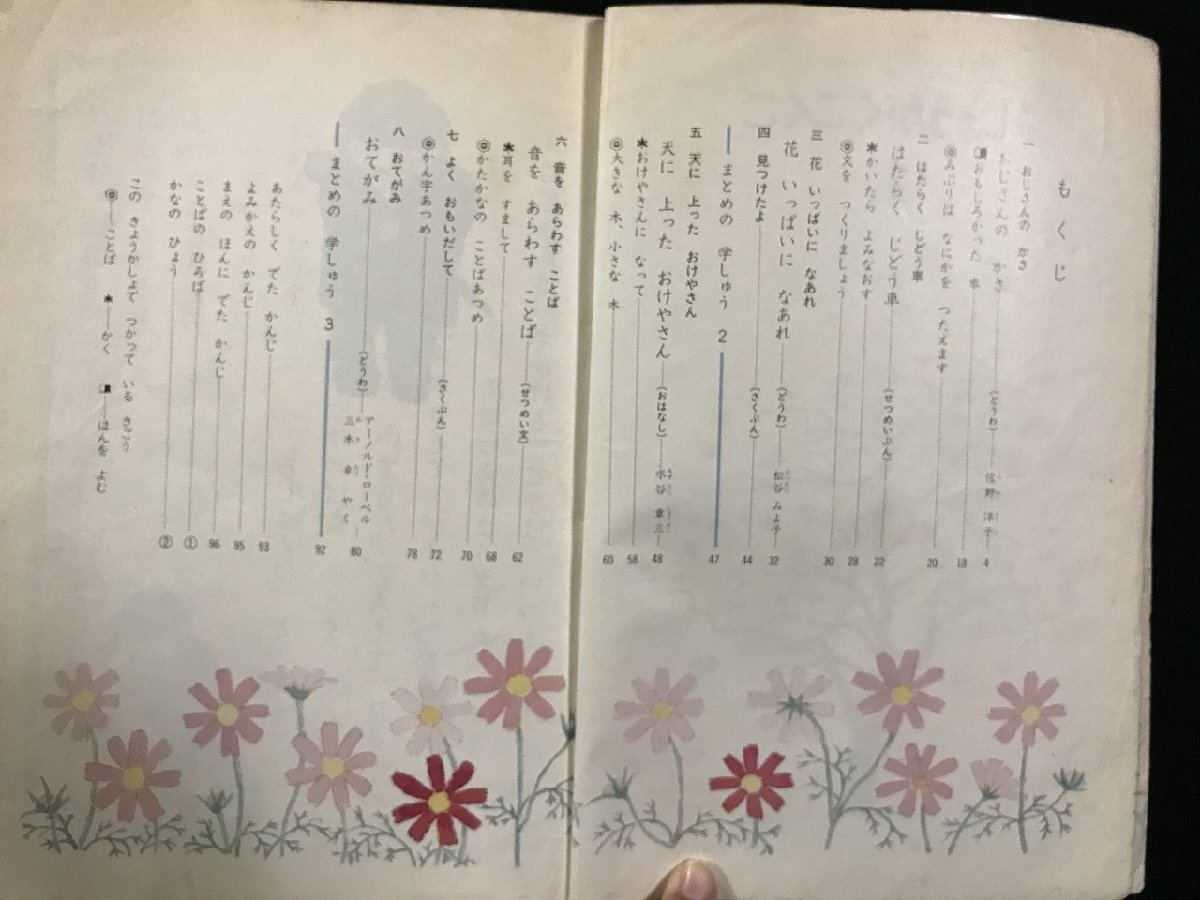 もくじ
一 おじさんの かさ
おじさんの かさ (どうわ) 佐野 洋子 4
おもしろかった 本 18
みぶりは なにかを つたえます 20
二 はたらく じどう車
はたらく じどう車 (せつめいぶん) 22
かいたら よみなおす 28
文を つくりましょう 30
三 花 いっぱいに なあれ
花 いっぱいに なあれ (どうわ) 松谷 みよ子 32
四 見つけたよ (さくぶん) 44
まとめの 学しゅう 2 47
五 天に 上った おけやさん
天に 上った おけやさん (おはなし) 水谷 章三 48
おけやさんに なって 58
大きな 木、小さな 木 60
六 音を あらわす ことば
音を あらわす ことば (せつめい文) 62
耳を すまして 68
かたかなの ことばあつめ 70
七 よく おもいだして (さくぶん) 72
かん字あつめ 78
八 おてがみ
おてがみ (どうわ) アーノルド=ローベル 80
三木 卓 やく
まとめの 学しゅう 3 92
あたらしく でた かんじ 93
よみかえの かんじ 95
まえの ほんに でた かんじ 96
ことばの ひろば ①
かなの ひょう ②
この きょうかしょで つかって いる きごう
ことば かく ほんを よむ